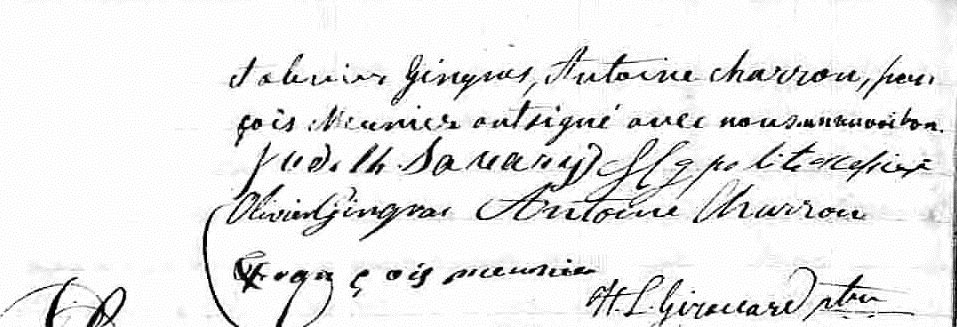 et olivier Gingras, Antoine charron, fran
çois Meunier ont signé avec nous un mot bon.
Judith Savary
Olivier Gingras Antoine Charron
François meunier
H. L. Girouard ptre